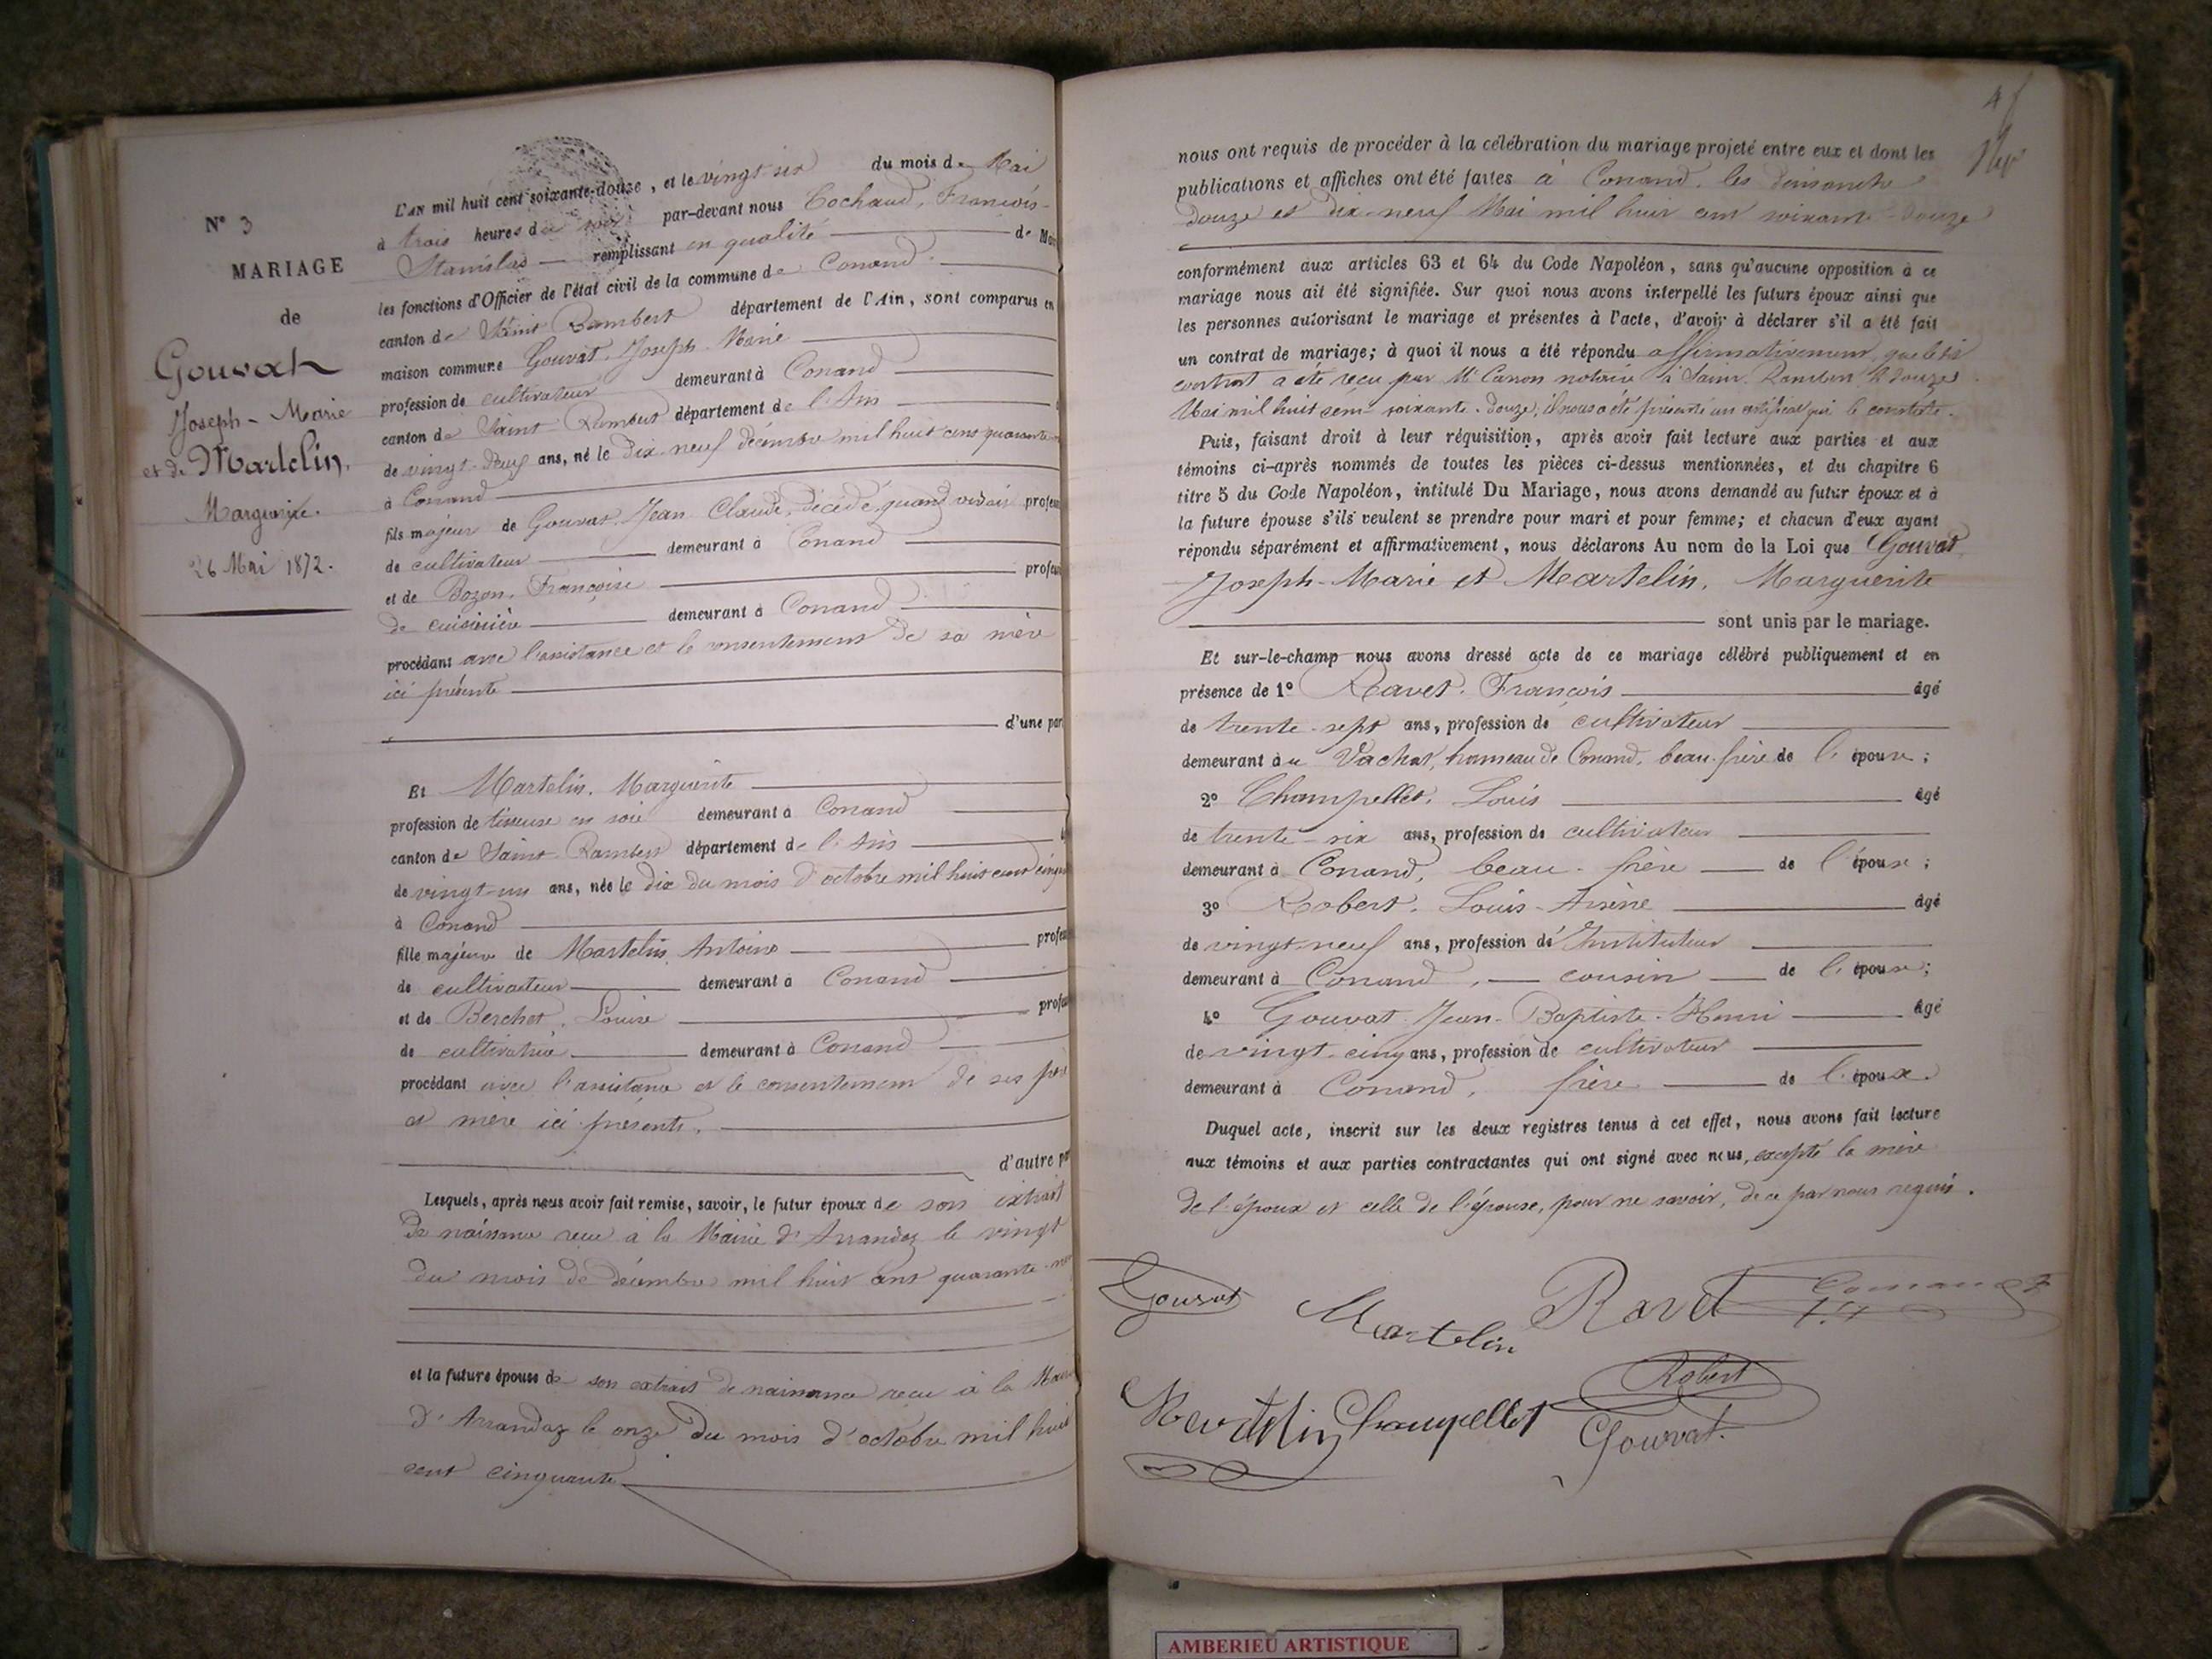 N° 3
MARIAGE
de
Gouvat
Joseph-Marie
et de Martelin,
Marguerite.
26 Mai 1872.
L'AN mil huit cent soixante-douze, et le vingt six du mois de Mai
à trois heures du soir par-devant nous Cochaud, François-
Stanislas remplissant en qualité de Mai
les fonctions d'Officier de l'état civil de la commune de Conand
canton de Saint Rambert département de l'Ain, sont comparus en
maison commune Gouvat, Joseph-Marie
profession de cultivateur demeurant à Conand
canton de Saint-Rambert département de l'Ain
de vingt-deux ans, né le dix-neuf décembre mil huit cent quarante
à Conand
fils majeur de Gouvat, Jean Claude, décédé, quand vivait profess
de cultivateur demeurant à Conand
et de Bozon, Françoise profess
de cuisinière demeurant à Conand
procédant avec l'assistance et le consentement de sa mère
ici présente
d'une par
Et Martelin, Marguerite
profession de tisseuse en soie demeurant à Conand
canton de Saint-Rambert département de l'Ain
de vingt-un ans, née le dix du mois d'octobre mil huit cent cinqu
à Conand
fille majeure de Martelin, Antoine profess
de cultivateur demeurant à Conand
et de Berchet, Louise profess
de cultivatrice demeurant à Conand
procédant avec l'assistance et le consentement de ses père
et mère ici présents.
d'autre par
Lesquels, après nous avoir fait remise, savoir, le futur époux de son extrait
de naissance reçu à la Mairie d'Arandaz le vingt
du mois de décembre mil huit cent quarante
et la future épouse de son extrait de naissance reçu à la Mairie
d'Arandaz le onze du mois d'octobre mil huit
cent cinquante
nous ont requis de procéder à la célébration du mariage projeté entre eux et dont les
publications et affiches ont été faites à Conand, les dimanche
douze et dix-neuf Mai mil huit cent soixante-douze
conformément aux articles 63 et 64 du Code Napoléon, sans qu'aucune opposition à ce
mariage nous ait été signifiée. Sur quoi nous avons interpellé les futurs époux ainsi que
les personnes autorisant le mariage et présentes à l'acte, d'avoir à déclarer s'il a été fait
un contrat de mariage; à quoi il nous a été répondu affirmativement, que le dit
contrat a été reçu par Me Canon notaire à Saint-Rambert le douze
Mai mil huit cent soixante-douze, il nous a été présenté un certificat qui le constate.
Puis, faisant droit à leur réquisition, après avoir fait lecture aux parties et aux
témoins ci-après nommés de toutes les pièces ci-dessus mentionnées, et du chapitre 6
titre 5 du Code Napoléon, intitulé Du Mariage, nous avons demandé au futur époux et à
la future épouse s'ils veulent se prendre pour mari et pour femme; et chacun d'eux ayant
répondu séparément et affirmativement, nous déclarons Au nom de la Loi que Gouvat
Joseph-Marie et Martelin, Marguerite
sont unis par le mariage.
Et sur-le-champ nous avons dressé acte de ce mariage célébré publiquement et en
présence de 1° Ravet, François âgé
de trente-sept ans, profession de cultivateur
demeurant au Vachat, hameau de Conand, beau-frère de l'épouse;
2° Champellet, Louis âgé
de trente-six ans, profession de cultivateur
demeurant à Conand, beau-frère de l'épouse;
3° Robert, Louis-Arsène âgé
de vingt-neuf ans, profession d'Instituteur
demeurant à Conand, cousin de l'épouse;
4° Gouvat Jean-Baptiste-Henri âgé
de vingt-cinq ans, profession de cultivateur
demeurant à Conand, frère de l'époux.
Duquel acte, inscrit sur les deux registres tenus à cet effet, nous avons fait lecture
aux témoins et aux parties contractantes qui ont signé avec nous, excepté la mère
de l'époux et celle de l'épouse, pour ne savoir, de ce par nous requis.
Gouvat Martelin Ravet
Martelin Champellet Robert
Gouvat
AMBERIEU ARTISTIQUE